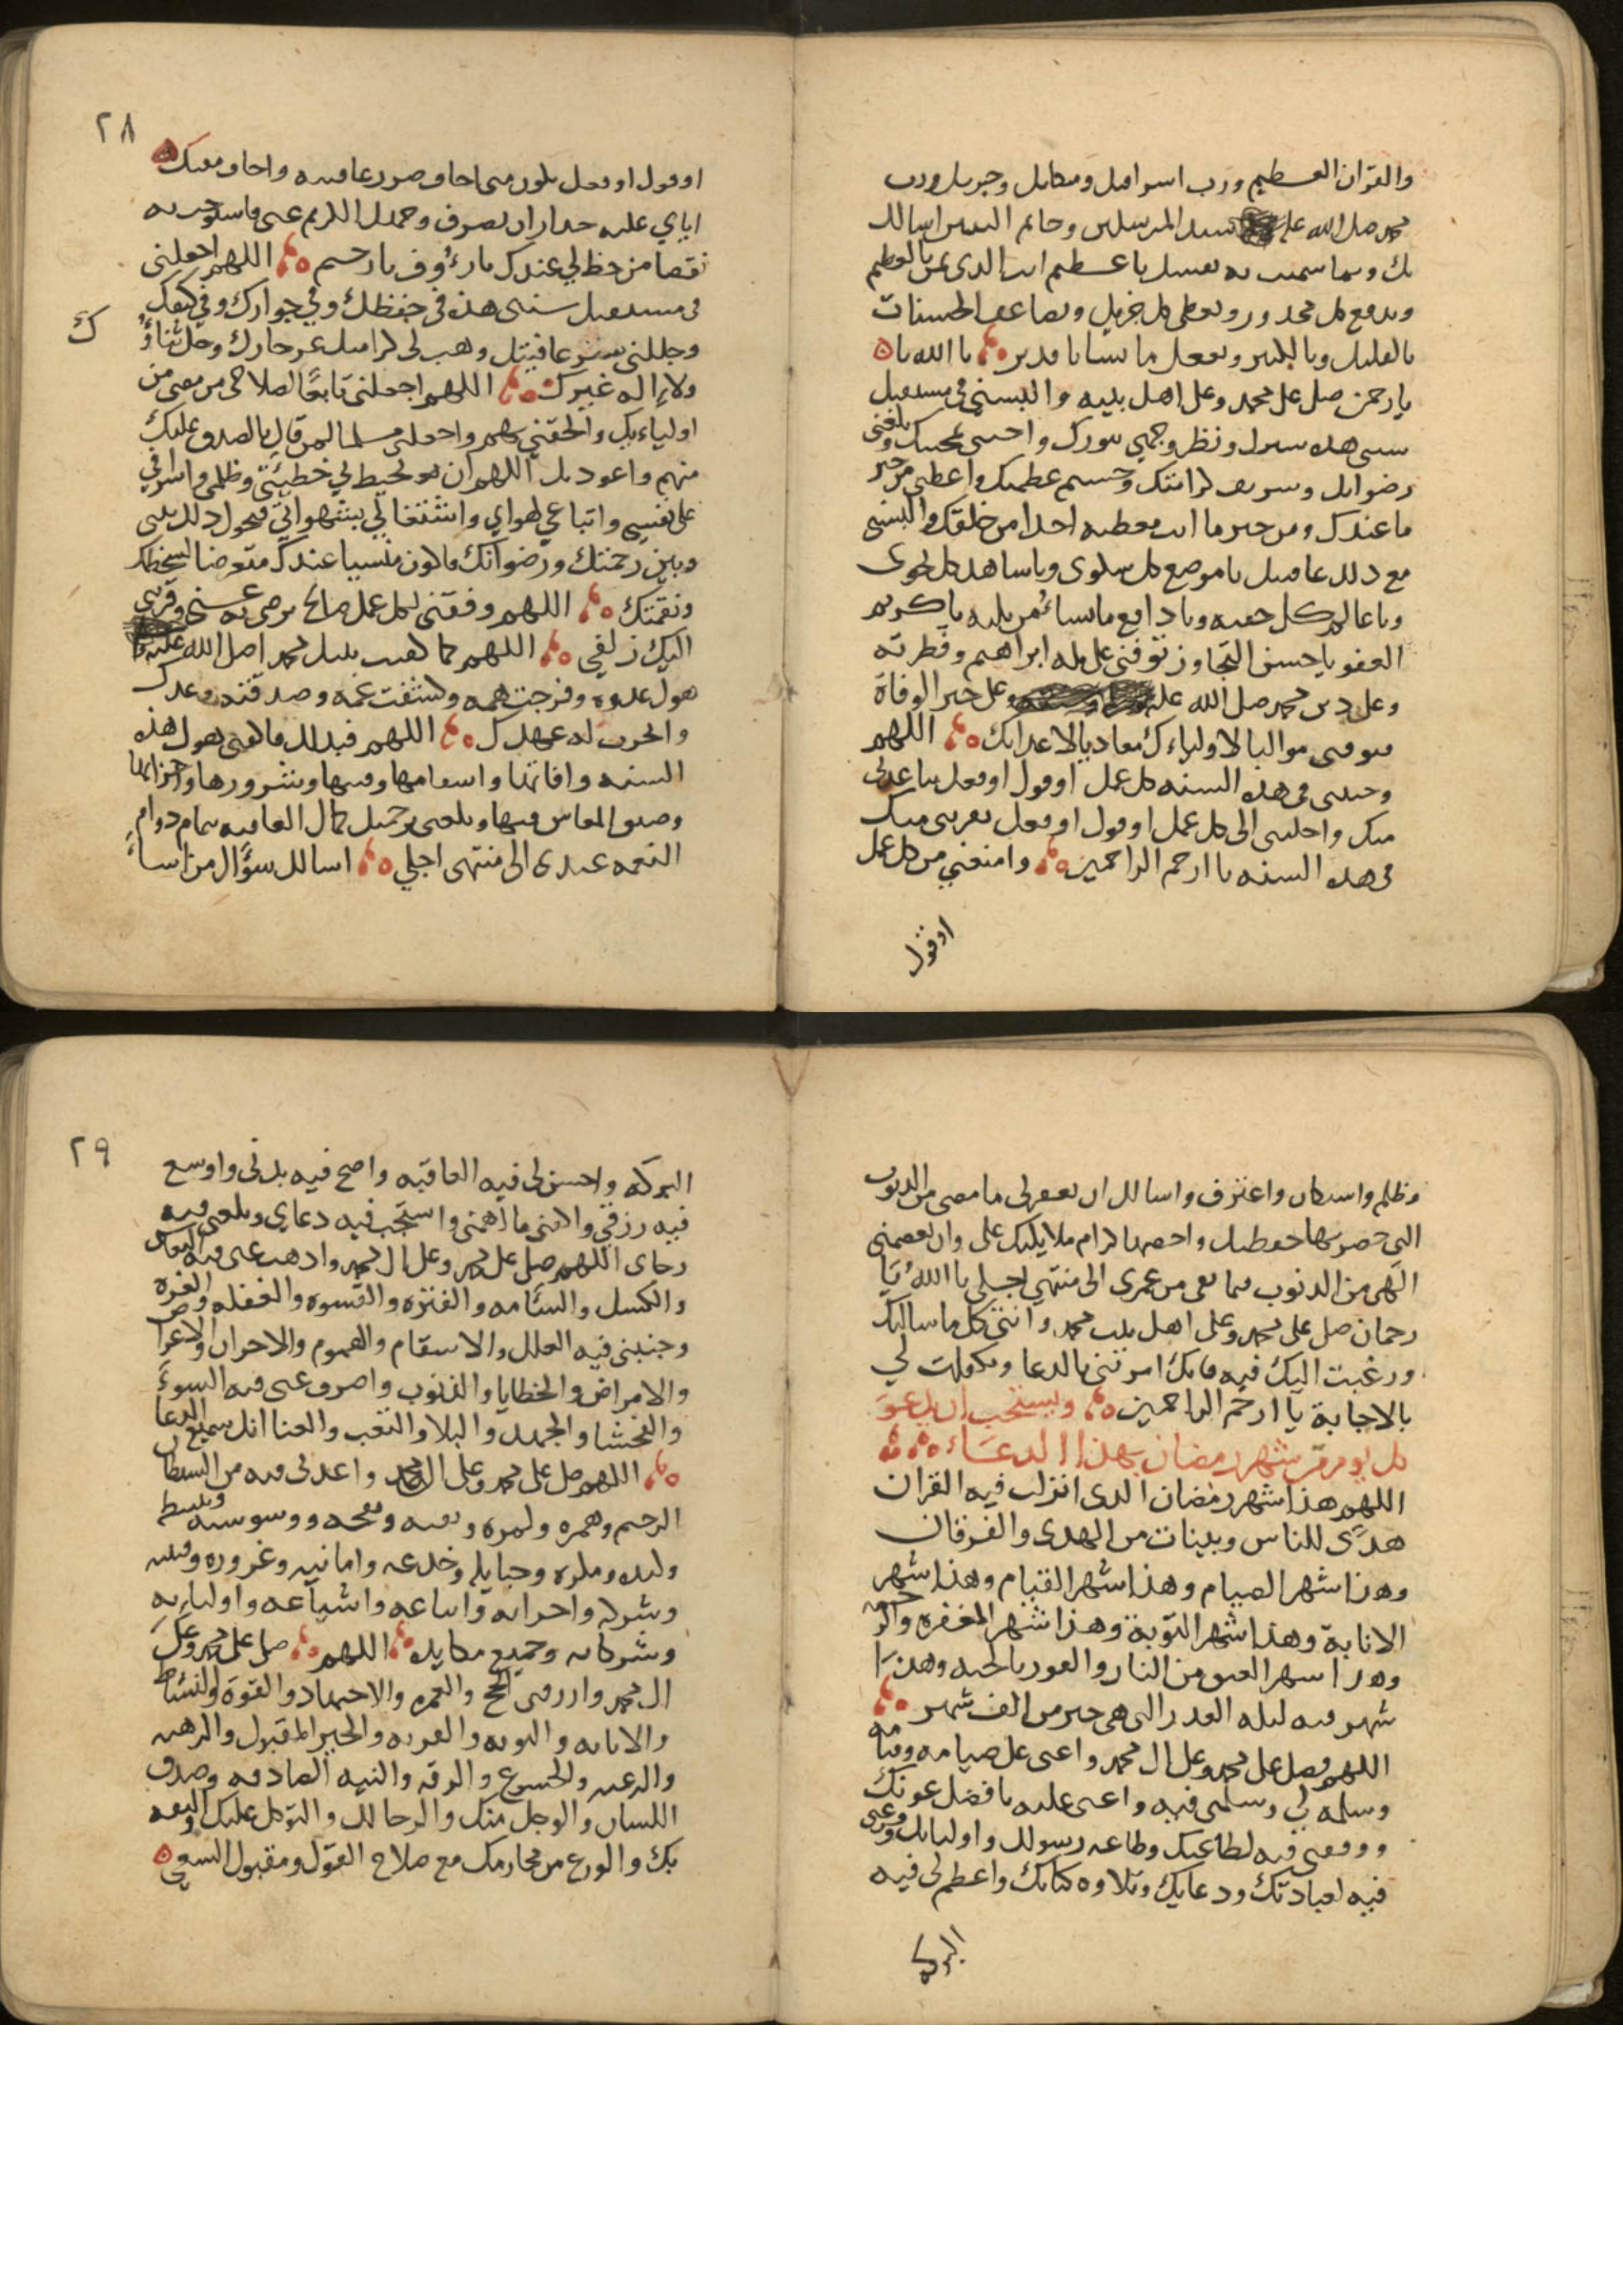 والقران العظيم ورب اسرافيل وميكايل وجبريل ورب
محمد صل الله عليه سيد المرسلين وخاتم النبيين اسالك
بك وبما سميت به نفسك يا عظيم انت الذي تمن بالعظيم
وتدفع كل محذور وتعطي كل جزيل وتضاعف الحسنات
بالقليل وبالكثير وتفعل ما تشا يا قدير يا الله يا
يا رحمن صل على محمد وعلى اهل بيته والبسني في مستقبل
سنتي هذه سترك ونظر وجهي بنورك واحيني بمحبتك وبلغني
رضوانك وشريف كرامتك وجسيم عطيتك واعطني من خير
ما عندك ومن خير ما انت معطيه احدا من خلقك والبسني
مع ذلك عافيتك يا موضع كل شكوى ويا شاهد كل نجوى
ويا عالم كل خفيه ويا دافع ما تشاء من بليه يا كريم
العفو يا حسن التجاوز توفني على مله ابراهيم وفطرته
وعلى دين محمد صل الله عليه وعلى خير الوفاة
فتوفني مواليا لاولياءك معاديا لاعدايك اللهم
وجنبني في هذه السنه كل عمل او قول او فعل يباعدني
منك واجلبني الى كل عمل او قول او فعل يقربني منك
في هذه السنه يا ارحم الراحمين وامنعني من كل عمل
او قول
٢٨
او قول او فعل يكون مني اخاف ضرر عاقبته واخاف مقتك
اياي عليه حذار ان تصرف وجهك الكريم عني فاستوجب به
نقصا من حظ لي عندك يا رءوف يا رحيم اللهم اجعلني
في مستقبل سنتي هذه في حفظك وفي جوارك وفي كنفك
وجللني ستر عافيتك وهب لي كرامتك عز جارك وجل ثناؤ
ك
ولا اله غيرك اللهم اجعلني تابعا لصالحي من مضى من
اولياءك والحقني بهم واجعلني مسلما لمن قال بالصدق عليك
منهم واعوذ بك اللهم ان تحيط لي خطيئتي وظلمي واسرافي
على نفسي واتباعي لهواي واشتغالي بشهواتي فيحول ذلك بيني
وبين رحمتك ورضوانك فاكون منسيا عندك متعرضا لسخطك
ونقمتك اللهم وفقني لكل عمل صالح ترضى به عني وقربني
اليك زلفى اللهم كما كفيت نبيك محمد اصل الله عليه
هول عدوه وفرجت همه وكشفت غمه وصدقته وعدك
وانجزت له عهدك اللهم فبذلك فاكفني هول هذه
السنه وافاتها واسقامها وفتنها وشرورها واحزانها
وضيق المعاش فيها وبلغني برحمتك كمال العافيه بتمام دوام
النعمه عندي الى منتهى اجلي اسالك سؤال من اساء
وظلم واستكان واعترف واسالك ان تغفر لي ما مضى من الذنوب
التي حصرتها حفظتك واحصتها كرام ملايكتك علي وان تعصمني
الهي من الذنوب فيما بقي من عمري الى منتهى اجلي يا الله يا
رحمان صل على محمد وعلى اهل بيت محمد واتني كل ما سالتك
ورغبت اليك فيه فانك امرتني بالدعا وتكفلت لي
بالاجابة يا ارحم الراحمين ويستحب ان يدعو
كل يوم من شهر رمضان بهذا الدعاء
اللهم هذا شهر رمضان الذي انزلت فيه القران
هدى للناس وبينات من الهدى والفرقان
وهذا شهر الصيام وهذا شهر القيام وهذا شهر
الانابة وهذا شهر التوبة وهذا شهر المغفره والرحمه
وهذا شهر العتق من النار والفوز بالجنه وهذا
شهر فيه ليله القدر التي هي خير من الف شهر
اللهم فصل على محمد وعلى ال محمد واعني على صيامه وقيامه
وسلمه لي وسلمني فيه واعني عليه بافضل عونك
ووفقني فيه لطاعتك وطاعه رسولك واوليايك وفرغني
فيه لعبادتك ودعايك وتلاوه كتابك واعظم لي فيه
البركه
٢٩
البركه واحسن لي فيه العافيه واصح فيه بدني واوسع
فيه رزقي واكفني ما اهمني واستجب فيه دعاي وبلغني فيه
رجاي اللهم صل على محمد وعلى ال محمد واذهب عني فيه النعاس
والكسل والسئامه والفتره والقسوه والغفله والغره
وجنبني فيه العلل والاسقام والهموم والاحزان والاعراض
والامراض والخطايا والذنوب واصرف عني فيه السوء
والفحشا والجهد والبلا والتعب والعنا انك سميع الدعا
اللهم صل على محمد وعلى ال محمد واعذني فيه من الشيطان
الرجيم وهمزه ولمزه ونفثه ونفخه ووسوسته وتثبيطه
وكيده ومكره وحبايله وخدعه وامانيه وغروره وفتنته
وشركه واحزابه واتباعه واشياعه واوليايه
وشركايه وجميع مكايده اللهم صل على محمد وعلى
ال محمد وارزقني الحج والعمره والاجتهاد والقوة والنشاط
والانابه والتوبه والقربه والخير المقبول والرهبه
والرغبه والخشوع والرقه والنيه الصادقه وصدق
اللسان والوجل منك والرجا لك والتوكل عليك والثقه
بك والورع من محارمك مع صلاح القول ومقبول السعي